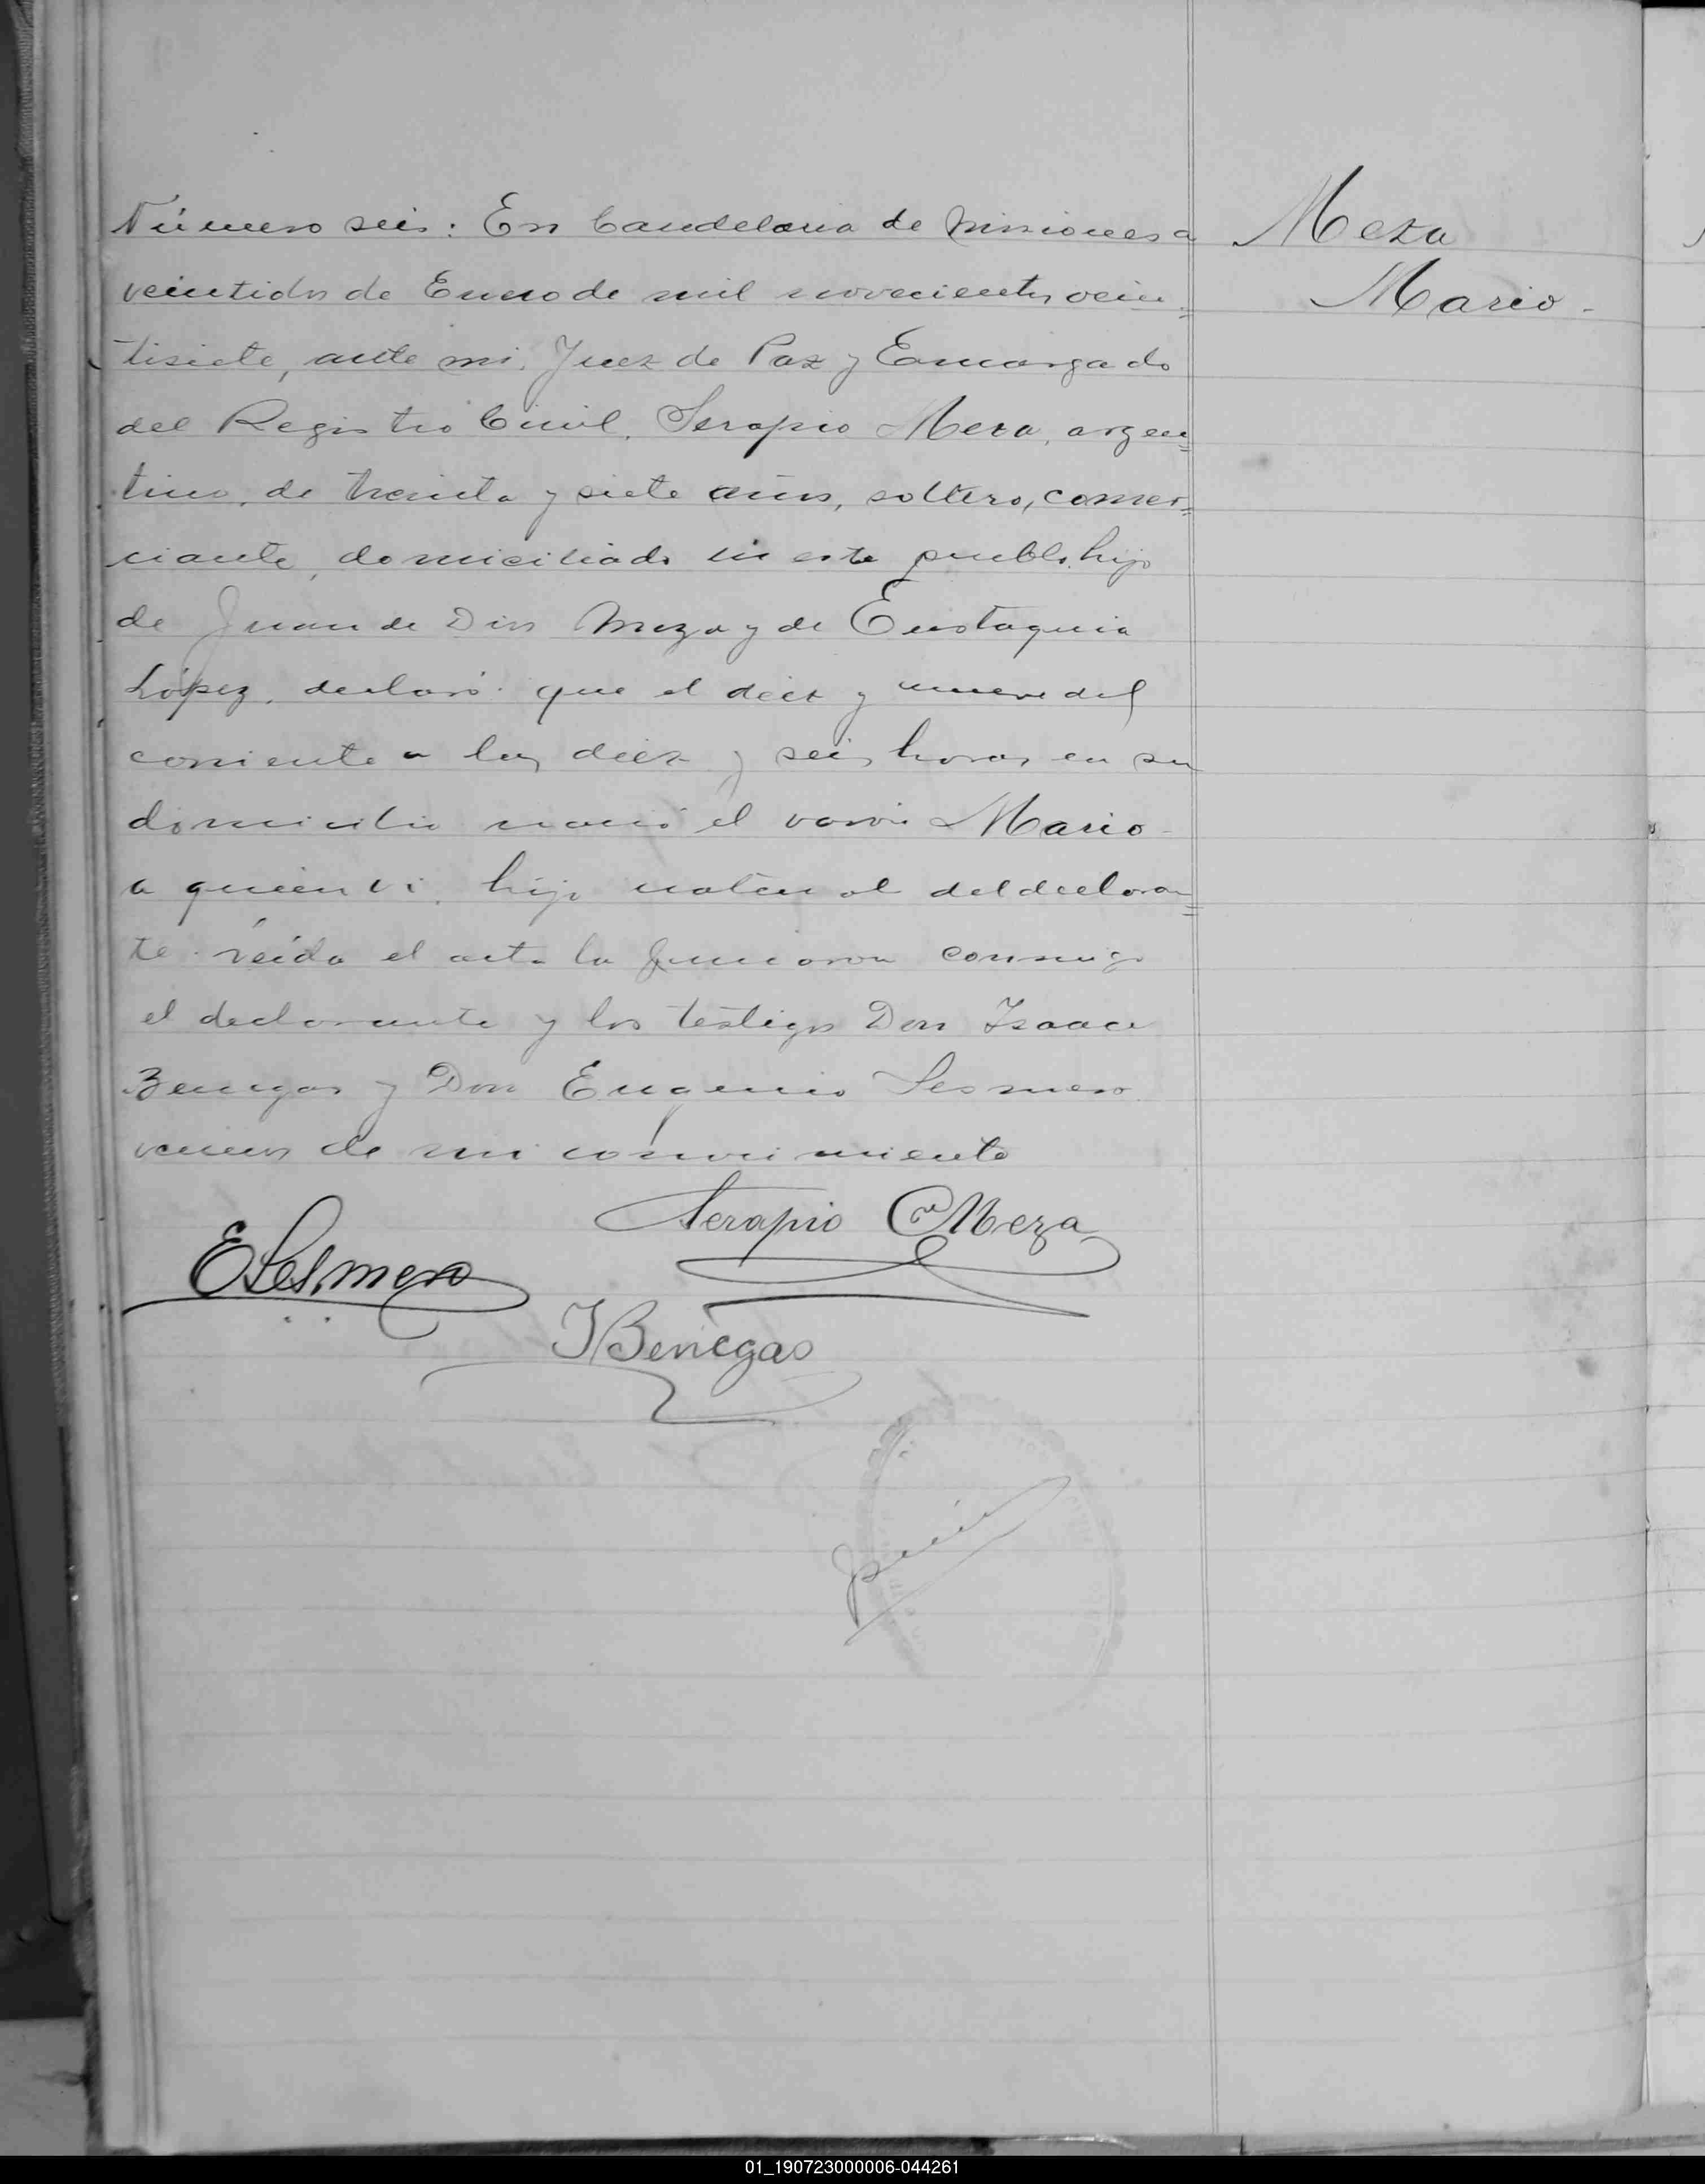 Número seis: En Candelaria de Misiones a
veintidos de Enero de mil novecientos vein=
tisiete, ante mi, Juez de Paz y Encargado
del Registro Civil, Serapio Meza, argen=
tino, de treinta y siete años, soltero, comer=
ciante, domiciliado en este pueblo, hijo
de Juan de Dios Meza y de Eustaquia
López, declaró: que el diez y nueve del
corriente a las diez y seis horas en su
domicilio nació el varón Mario
a quien vi, hijo natural del declaran=
te. leída el acta la firmaron conmigo
el declarante y los testigos Don Isaac
Benegas y Don Eugenio Sesmero
vecinos de mi conocimiento
Meza
Mario -
Serapio Meza
ESesmero
IBenegas
01_190723000006-044261